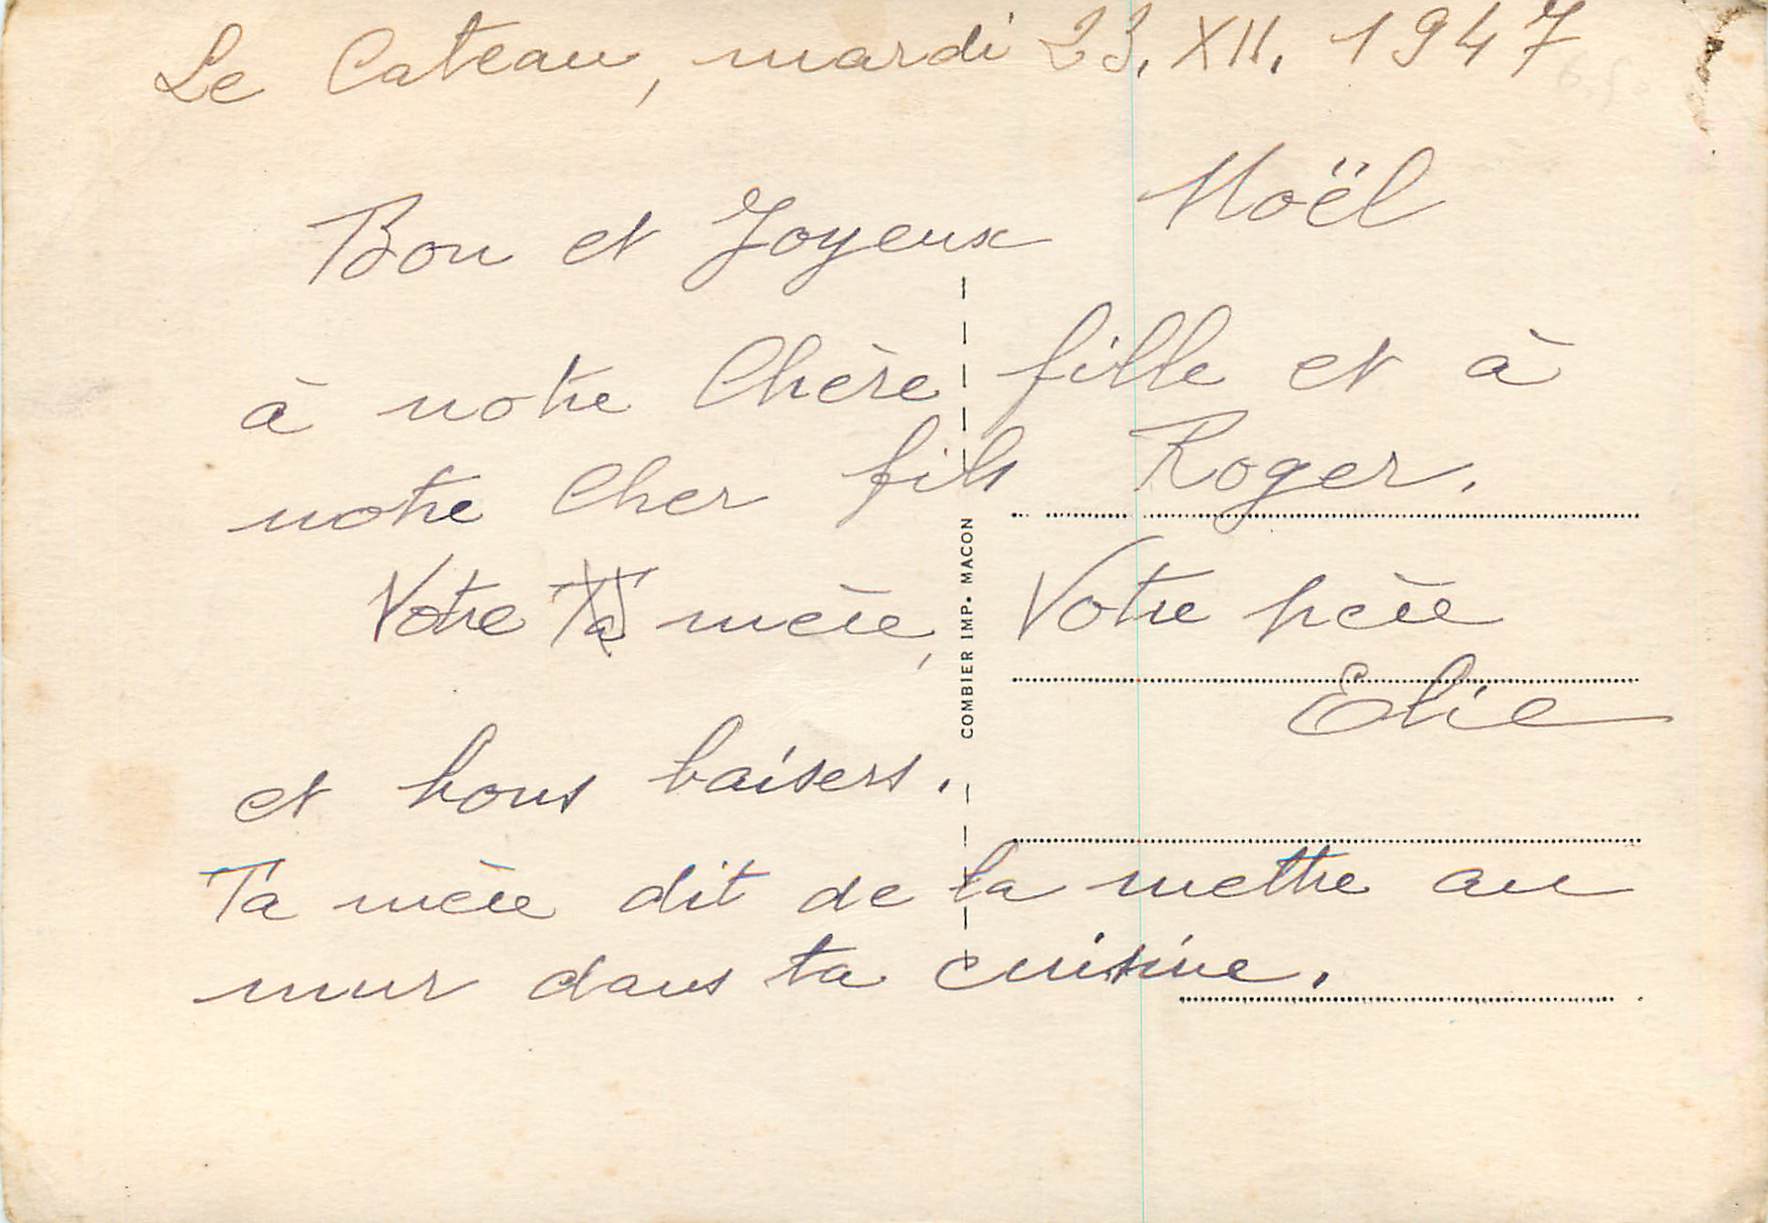 Le Cateau, mardi 23. XII. 1947
Bon et Joyeux Noël
à notre Chère fille et à
notre Cher fils Roger.
Votre Ta mère, Votre père
Elie
et bons baisers.
Ta mère dit de la mettre au
mur dans ta cuisine.
COMBIER IMP. MACON